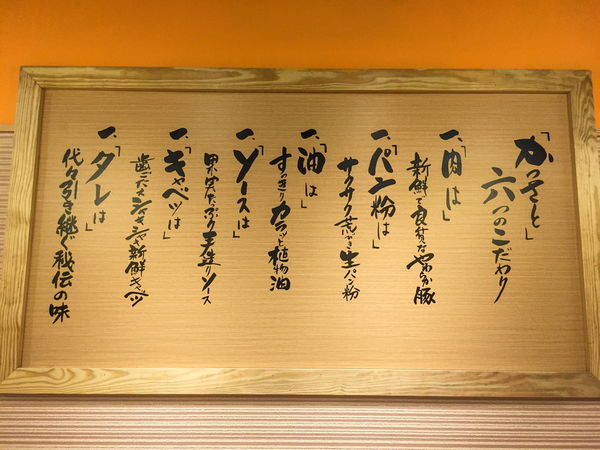 「かつさと」
六つのこだわり
一、「肉は」
新鮮で良質なやわらか豚
一、「パン粉は」
サクサク荒びき生パン粉
一、「油は」
すっきりカラッと植物油
一、「ソースは」
果実たっぷり手造りソース
一、「キャベツは」
歯ごたえシャキシャキ新鮮キャベツ
一、「タレは」
代々引き継ぐ秘伝の味